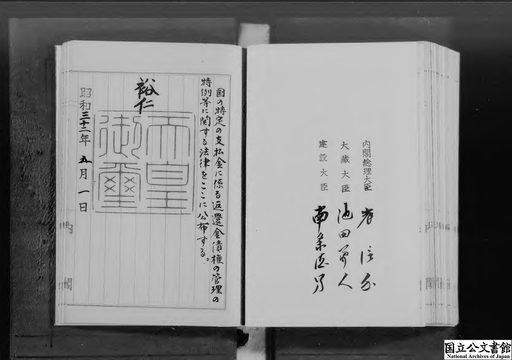 国の特定の支払金に係る返還金債権の管理の
特例等に関する法律をここに公布する。
裕仁
天皇
御璽
昭和三十二年五月一日
内閣総理大臣 岸信介
大蔵大臣 池田勇人
建設大臣 南条徳男
国立公文書館
National Archives of Japan